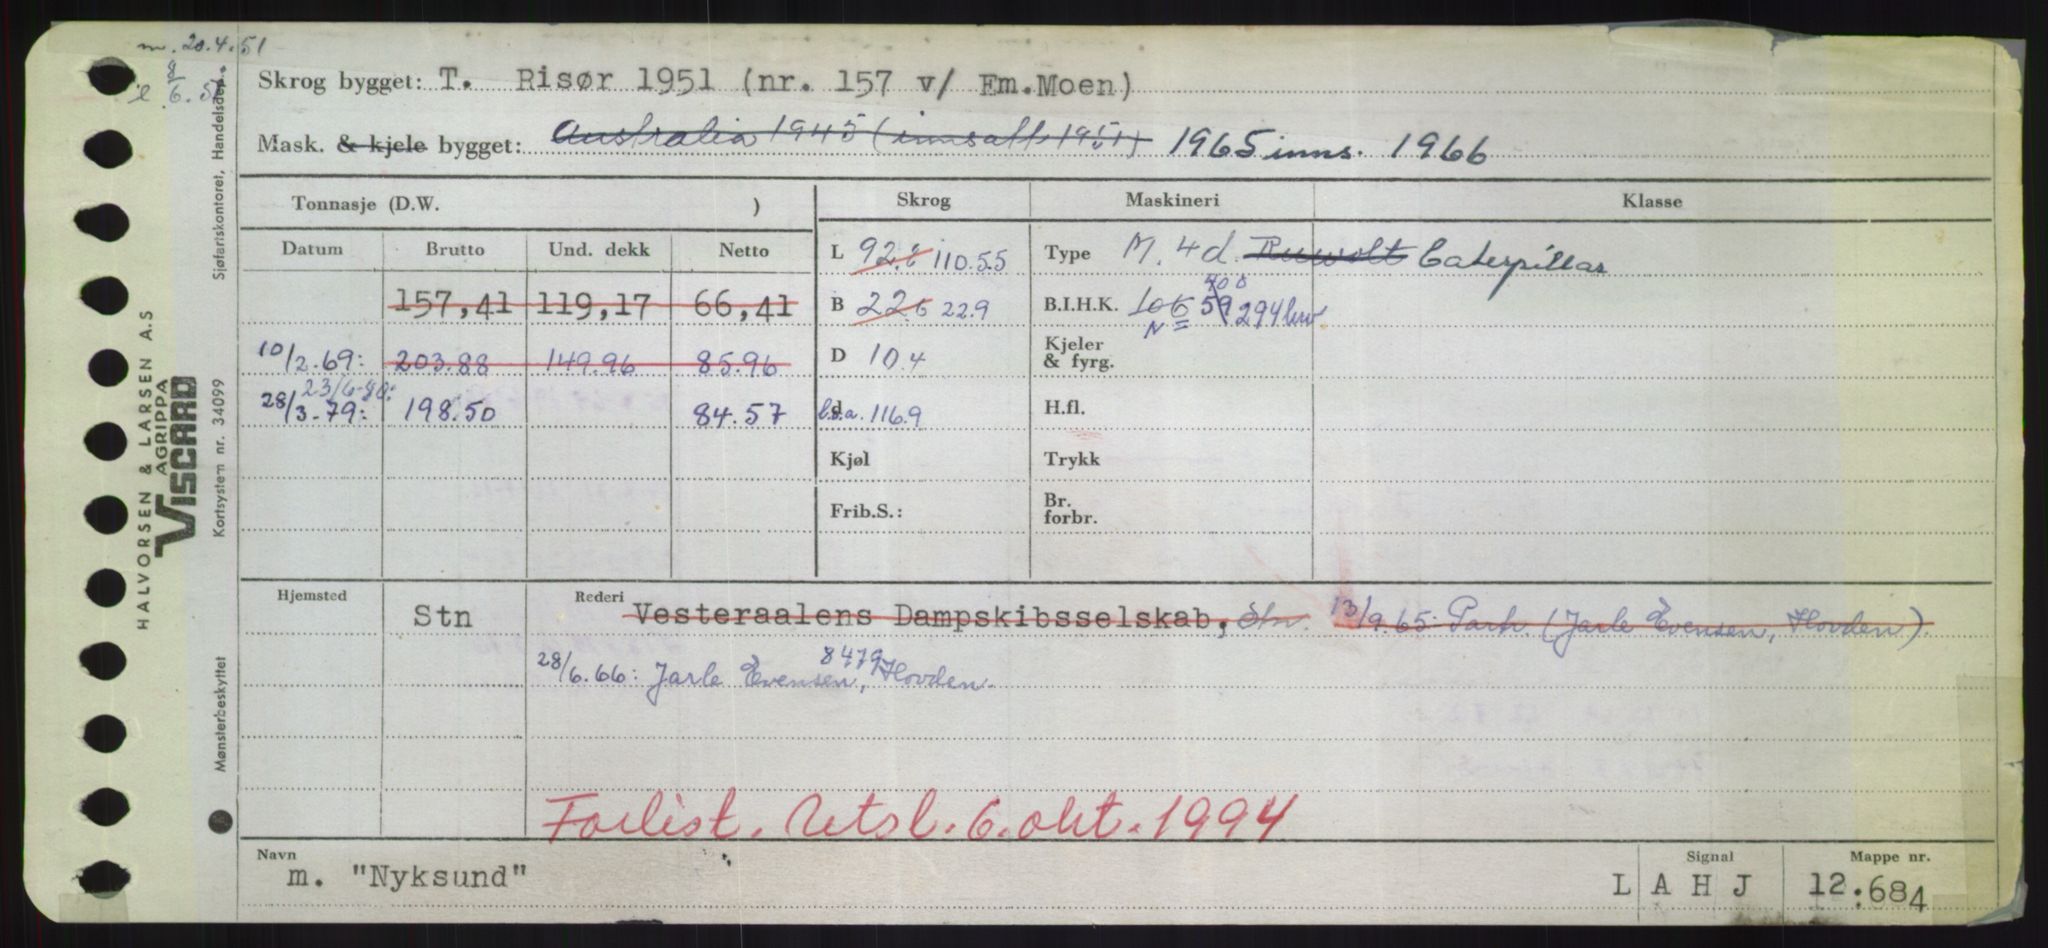 m. 20.4.51
8/6.51
Skrog bygget: T. Risør 1951 (nr. 157 v/ Em.Moen)
Mask. & kjele bygget: Australia 1945 (innsatt 1951) 1965 inns. 1966
Tonnasje (D.W. ) Skrog Maskineri Klasse
Datum Brutto Und. dekk Netto L 92.6 110.55 Type M. 4d. Ruwolt Caterpillar
157,41 119,17 66,41 B 22.6 22.9 B.I.H.K. 106 59 400 294 kw
N
10/2.69: 203.88 149.96 85.96 D 10.4 Kjeler & fyrg.
23/6-80:
28/3.79: 198.50 84.57 d l.o.a. 116.9 H.fl.
Kjøl Trykk
Frib.S.: Br. forbr.
Hjemsted Stn Rederi Vesteraalens Dampskibsselskab, Stn. 13/9.65: Partr. (Jarle Evensen, Hovden).
28/6.66: Jarle Evensen, 8479 Hovden.
Forlist. Utsl. 6. okt. 1994
Navn Signal Mappe nr.
m. "Nyksund" L A H J 12.684
HALVORSEN & LARSEN A.S
AGRIPPA
VISCARD
Mønsterbeskyttet Kortsystem nr. 34099 Sjøfartskontoret, Handelsdep.